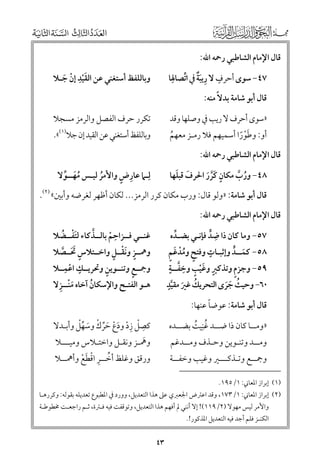 مجلة
العدد الثالث السنة الثانية
قال الإمام الشاطبي رحمه الله:
٤٧- سوى أحرفٍ لا رِيبةٌ في اتِّصالِها وباللفظ أستغني عن القَيْدِ إنْ جَـلا
قال أبو شامة بدلاً منه:
«سوى أحرف لا ريب في وصلها وقد تكرر حرف الفصل والرمز مسجلا
أو: وَطَوْرًا أسميهم فلا رمـز معهمُ وباللفظ أستغني عن القيد إن جلا»(١).
قال الإمام الشاطبي رحمه الله:
٤٨- ورُبَّ مكانٍ كَرَّرَ الحرفَ قَبلَها لِمـا عارِضٍ والأمرُ ليـس مُهَـوِّلا
قال أبو شامة: «ولو قال: ورب مكان كرر الرمز... لكان أظهر لغرضه وأبين»(٢).
قال الإمام الشاطبي رحمه الله:
٥٧- وما كان ذا ضِدٍّ فإنـي بضِـدِّه غنـي فـزاحِمْ بالـذَّكاء لتَفْـضُـلا
٥٨- كمـدٍّ وإثبـاتٍ وفتحٍ ومُدغَمٍ وهمـزٍ ونَقْـلٍ واختـلاسٍ تَحَـصَّـلا
٥٩- وجزمٍ وتذكيرٍ وغَيْبٍ وخِفَّـةٍ وجمـعٍ وتنويـنٍ وتحريـكٍ اعْمِـلا
٦٠- وحيثُ جَرَى التحريكُ غيرَ مقيَّدٍ هـو الفتـح والإسكانُ آخاه مَنْـزِلا
قال أبو شامة: عوضاً عنها:
«ومـا كان ذا ضـد غُنِيتُ بضـده فصِلْ زِدْ وَدَعْ حَرِّكْ وَسَهِّلْ وأبـدلا
ومـد وتنويـن وحـذف ومـدغم وهمـز ونقـل واختـلاس وميـلا
وجمـع وتـذكيـر وغيب وخفـة ورقق وغلظ أخِّـر اقْطَعْ وأهمـلا
(١) إبراز المعاني: ١/ ١٩٥.
(٢) إبراز المعاني: ١/ ١٧٣، وقد اعترض الجعبري على هذا التعديل، وورد في المطبوع تعديله بقوله: وكررهـا
والأمر ليس مهولا (٢/ ١١٩)! إلا أنني لم أفهم هذا التعديل، وتوقفت فيه فترة، ثم راجعت مخطوطة
الكنز فلم أجد فيه المذكور!.
٤٣